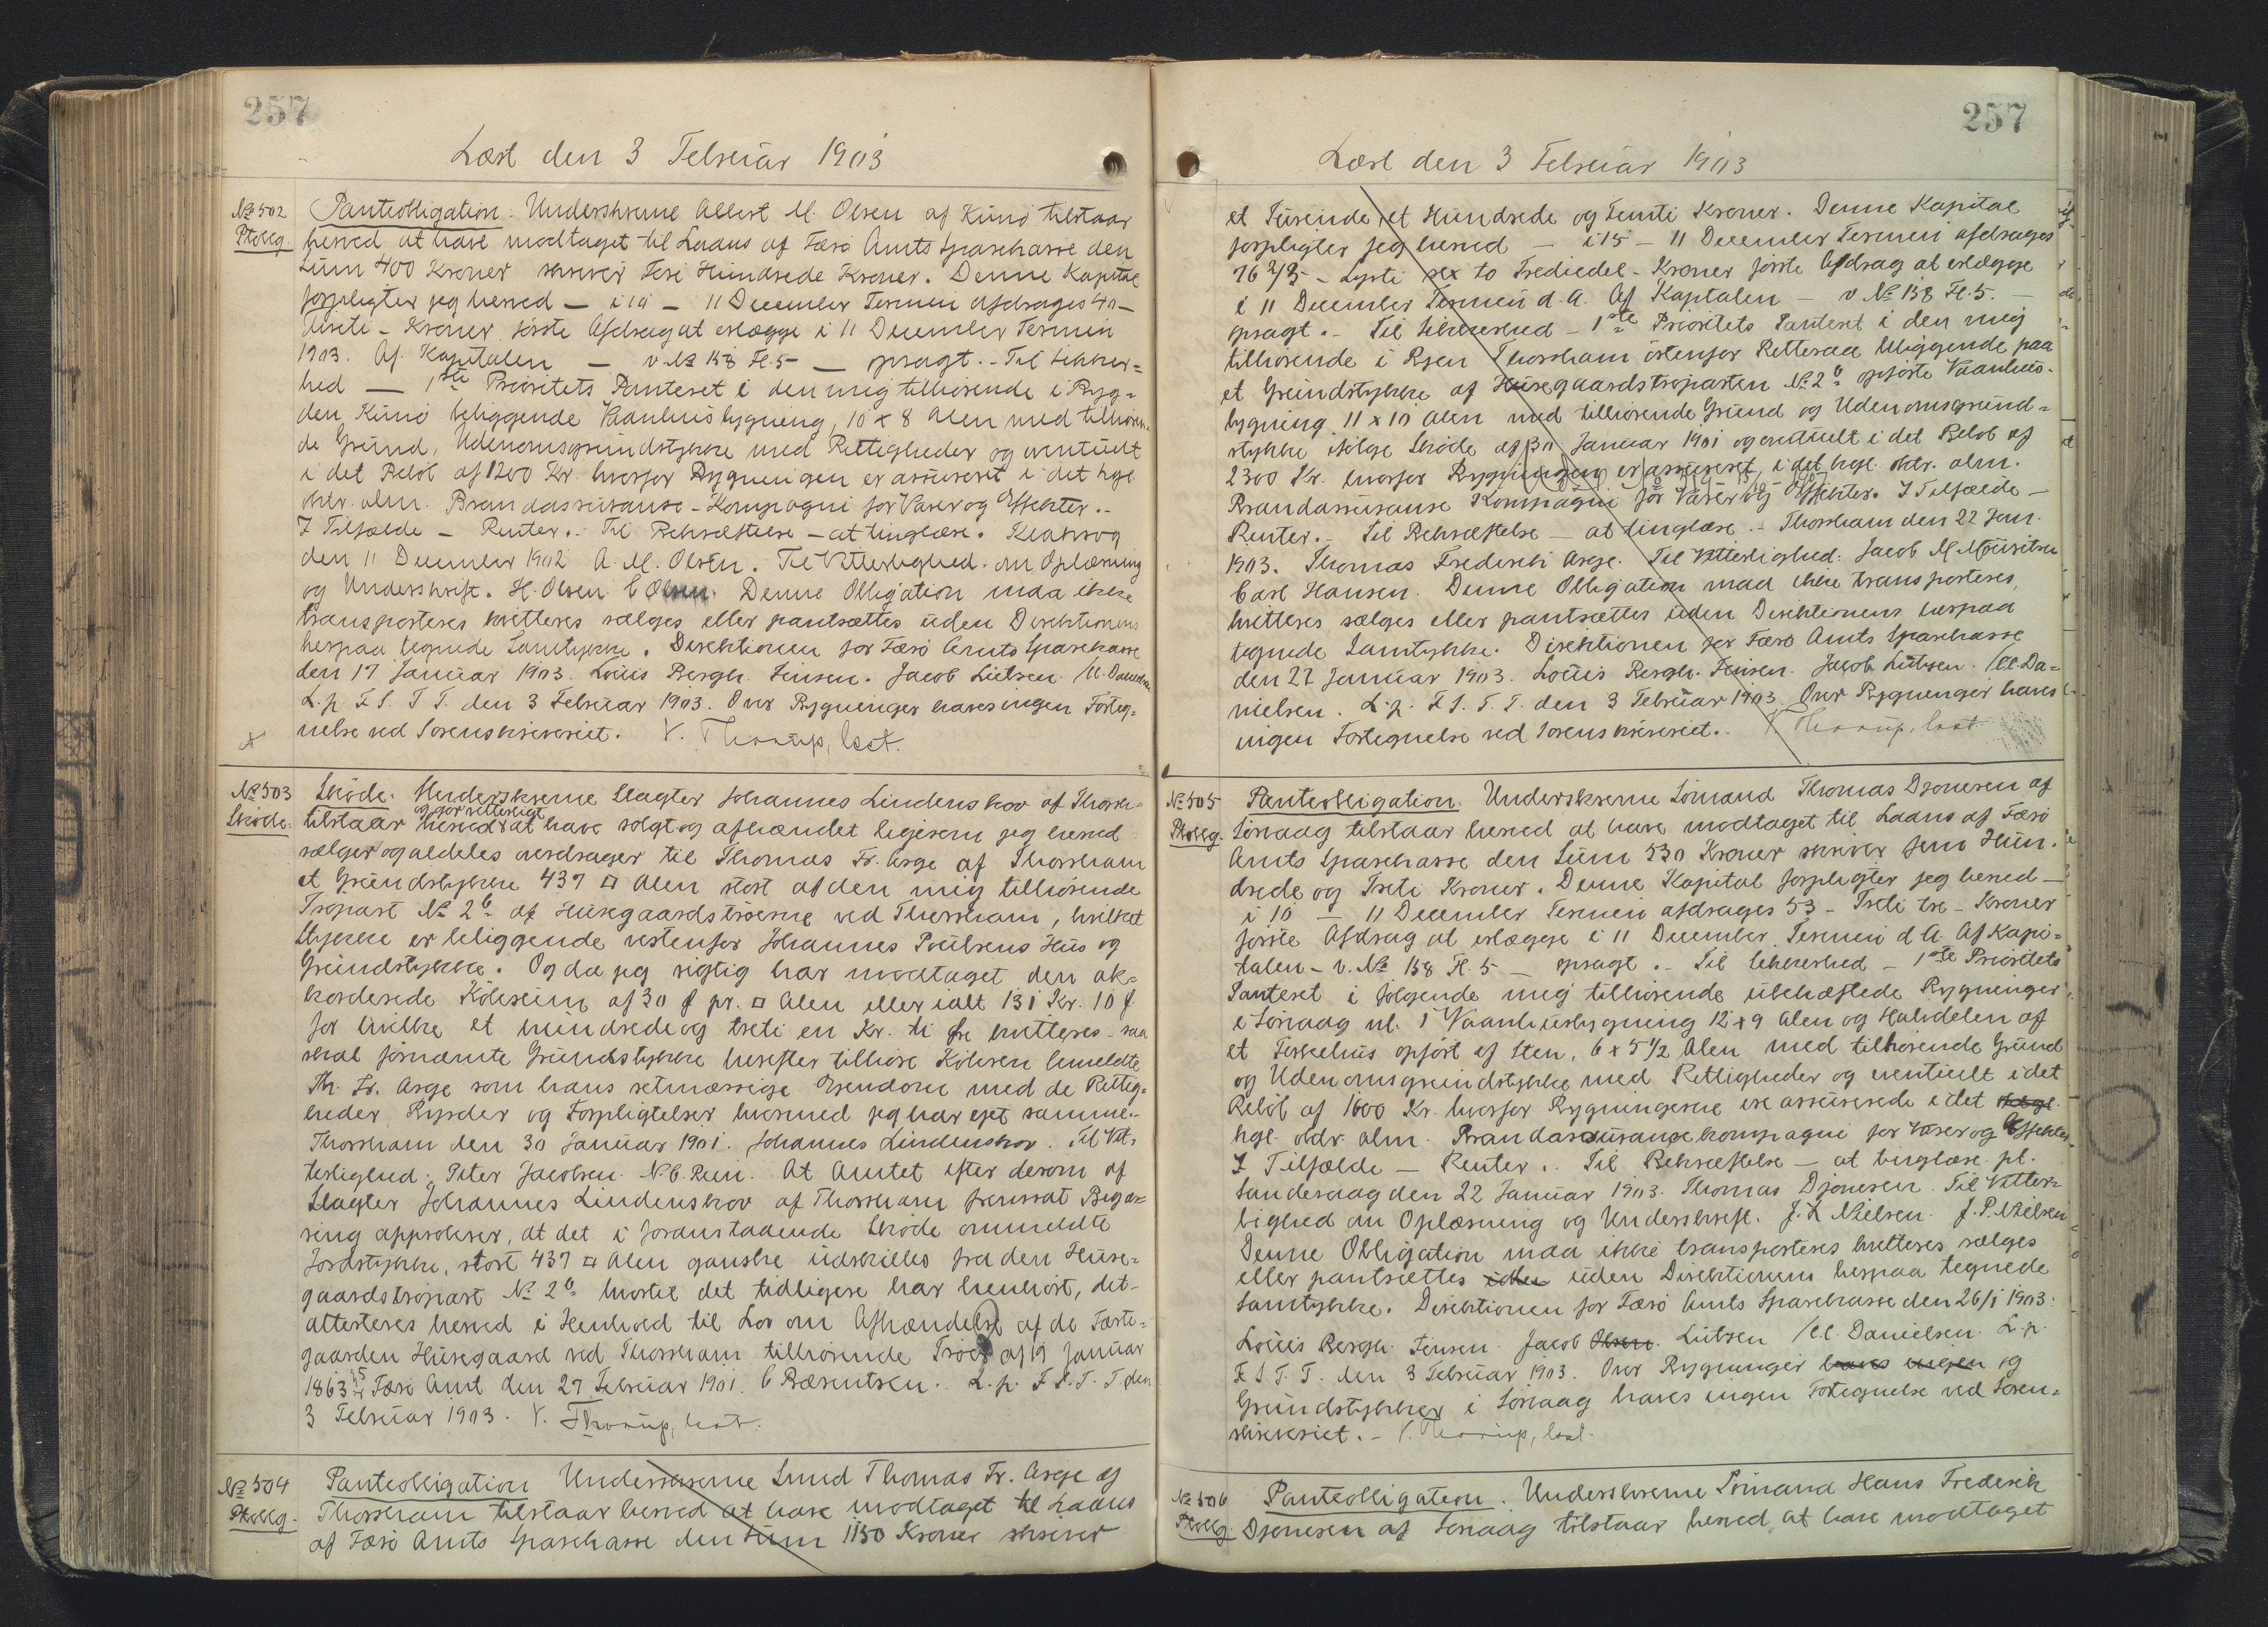 257
Læst den 3 Februar 1903
No 502
Ptoblg.
Panteobligation. Underskrevne Albert M. Olsen af Kunø tilstaar
herved at have modtaget til Laans af Færø Amts Sparekasse den
Sum 400 Kroner skriver Fire Hundrede Kroner. Denne Kapital
forpligter jeg herved — i 10 — 11 December Termin afdrages 40 —
fireti - Kroner første Afdrag at erlægge i 11 December Termin
1903. Af Kapitalen — v. No 158 Fl. 5 — opsagt. - Til Sikker=
hed — 1ste Prioritets Panteret i den mig tilhørende i Byg=
den Kunø beliggende Vaanhusbygning, 10 x 8 Alen med tilhøren=
de Grund, Udenomsgrundstykke med Rettigheder og eventuelt
i det Beløb af 1200 Kr. hvorfor Bygningen er assureret i det kgl.
oktr. alm. Brandassurance-Kompagni for Varer og Effekter. -
I Tilfælde — Renter. - Til Bekræftelse — at tinglæse. Klaksvog
den 11 December 1902 A. M. Olsen. Til Vitterlighed om Oplæsning
og Underskrift. H. Olsen. C Olsen. Denne Obligation maa ikke
transporteres kvitteres sælges eller pantsættes uden Direktionens
herpaa tegnede Samtykke. Direktionen for Færø Amts Sparekasse
den 17 Januar 1903. Louis Bergh. Jensen. Jacob Lützen. /C. Danielsen
L. p. F. S. T. T. den 3 Februar 1903. Over Bygninger haves ingen Forteg=
nelse ved Sorenskriveriet. V. Thorup, kst.
No 503
Skøde.
Skøde. Underskrevne Slagter Johannes Lindenskov af Thorsh.
og gør vitterligt
tilstaar herved at have solgt og afhændet ligesom jeg herved
sælger og aldeles overdrager til Thomas Fr. Arge af Thorshavn
et Grundstykke 437 □ Alen stort af den mig tilhørende
Trøpart No 2b af Husegaardstrøerne ved Thorshavn, hvilket
Stykke er beliggende vestenfor Johannes Poulsens Hus og
Grundstykke. Og da jeg rigtig har modtaget den ak=
korderede Købesum af 30 Ø pr. □ Alen eller ialt 131 Kr. 10 Ø
for hvilke et hundrede og treti en Kr. ti Øre kvitteres - saa
skal fornævnte Grundstykke herefter tilhøre Køberen bemeldte
Th. Fr. Arge som hans retmæssige Ejendom med de Rettig=
heder, Byrder og Forpligtelser hvormed jeg har ejet samme. -
Thorshavn den 30 Januar 1901. Johannes Lindenskov. Til Vit=
terlighed: Peter Jacobsen. N. C. Rein. At Amtet efter derom af
Slagter Johannes Lindenskov af Thorshavn fremsat Begæ=
ring approberer, at det i foranstaaende Skøde ommeldte
Jordstykke, stort 437 □ Alen ganske udskilles fra den Huse=
gaardstrøpart No 2b hvortil det tidligere har henhørt, det
attesteres herved i Henhold til Lov om Afhændelse af de Fæste=
gaarden Husegaard ved Thorshavn tilhørende Trøer af 19 Januar
1863 § 5. Færø Amt den 27 Februar 1901. C Bærentsen. L. p. F. S. T. T. den
3 Februar 1903. V. Thorup, kst.
No 504
Ptoblg.
Panteobligation Underskrevne Smed Thomas Fr. Arge af
Thorshavn tilstaar herved at have modtaget til Laans
af Færø Amts Sparekasse den Sum 1150 Kroner skriver
257
Læst den 3 Februar 1903
et Tusinde et Hundrede og Femti Kroner. Denne Kapital
forpligter jeg herved — i 15 — 11 December Termin afdrages
76 2/3 - Syvti sex to Trediedel - Kroner første Afdrag at erlægge
i 11 December Termin d. A. Af Kapitalen — v. No 158 Fl. 5. —
opsagt. - Til Sikkerhed — 1ste Prioritets Panteret i den mig
tilhørende i Byen Thorshavn østenfor Retteraa beliggende paa
et Grundstykke af Husegaardstrøparten No 2b opførte Vaanhus-
bygning 11 x 10 Alen med tilhørende Grund og Udenomsgrund=
stykke ifølge Skøde af 30 Januar 1901 og eventuelt i det Beløb af
2300 Kr. hvorfor Bygningen er assureret i det kgl. oktr. alm.
Brandassurance Kompagni for Varer og Effekter. I Tilfælde —
Renter. - Til Bekræftelse — at tinglæse. - Thorshavn den 22 Jan.
1903. Thomas Frederik Arge. Til Vitterlighed: Jacob M Mouritsen
Carl Hansen. Denne Obligation maa ikke transporteres
kvitteres, sælges eller pantsættes uden Direktionens herpaa
tegnede Samtykke. Direktionen for Færø Amts Sparekasse
den 22 Januar 1903. Louis Bergh. Jensen. Jacob Lützen. /C. Da=
nielsen. L. p. F. S. T. T. den 3 Februar 1903. Over Bygninger haves
ingen Fortegnelse ved Sorenskriveriet. V Thorup, kst.
No 505
Ptoblg.
Panteobligation. Underskrevne Sømand Thomas Djonesen af
Sørvaag tilstaar herved at have modtaget til Laans af Færø
Amts Sparekasse den Sum 530 Kroner skriver fem Hun=
drede og Treti Kroner. Denne Kapital forpligter jeg herved —
i 10 — 11 December Termin afdrages 53 - Treti tre - Kroner
første Afdrag at erlægge i 11 December Termin d. A. Af Kapi=
talen - v. No 158 Fl. 5 — opsagt. - Til Sikkerhed — 1ste Prioritets
Panteret i følgende mig tilhørende ubehæftede Bygninger
i Sørvaag nl. 1 Vaanhusbygning 12 x 9 Alen og Halvdelen af
et Torkehus opført af Sten, 6 x 5 1/2 Alen med tilhørende Grund
og Udenomsgrundstykke med Rettigheder og eventuelt i det
Beløb af 1600 Kr. hvorfor Bygningerne ere assurerede i det
kgl. oktr. alm. Brandassurancekompagni for Varer og Effekter.
I Tilfælde — Renter. - Til Bekræftelse — at tinglæse. pt.
Sandevaag den 22 Januar 1903. Thomas Djonesen. Til Vitter=
lighed om Oplæsning og Underskrift. J. K Nielsen. J. P. Nielsen
Denne Obligation maa ikke transporteres kvitteres sælges
eller pantsættes uden Direktionens herpaa tegnede
Samtykke. Direktionen for Færø Amts Sparekasse den 26/1 1903.
Louis Bergh. Jensen. Jacob Olsen. Lützen /C. Danielsen. L. p.
F. S. T. T. den 3 Februar 1903. Over Bygninger haves ingen og
Grundstykker i Sørvaag haves ingen Fortegnelse ved Soren=
skriveriet. - V. Thorup, kst.
No 506
Ptoblg.
Panteobligation. Underskrevne Sømand Hans Frederik
Djonesen af Sørvaag tilstaar herved at have modtaget